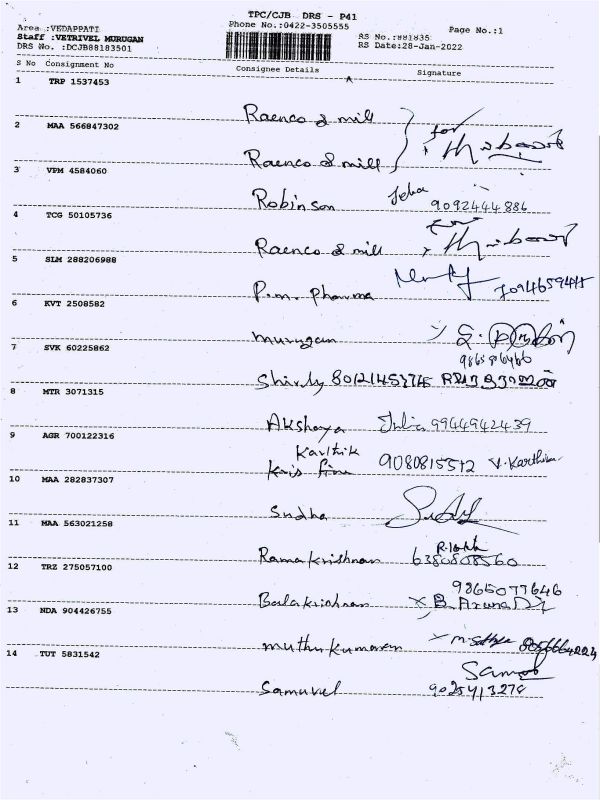 TPC/CJB DRS - P41
Area :VEDAPPATI Phone No.:0422-3505555 Page No.:1
Staff :VETRIVEL MURUGAN RS No.:881835
DRS No. :DCJB88183501 RS Date:28-Jan-2022
S No Consignment No Consignee Details Signature
1 TRP 1537453
Raenco & mill
2 MAA 566847302 for
Raenco & mill
3 VPM 4584060
Robinson Jeba 9092444886
4 TCG 50105736
Raenco & mill
5 SLM 288206988
P.m. Pharma
6 KVT 2508582
murugan
7 SVK 60225862
Shirly
8 MTR 3071315
Akshaya Julia 9944942439
9 AGR 700122316 Karthik
Kris 9080815512 V. Karthika
10 MAA 282837307
Sudha
11 MAA 563021258
Ramakrishnan 6380808560
12 TRZ 275057100 9865077646
Balakrishnan x B. Aruna
13 NDA 904426755
muthukumaran x m. Sathya
14 TUT 5831542
Samuvel 9025413278